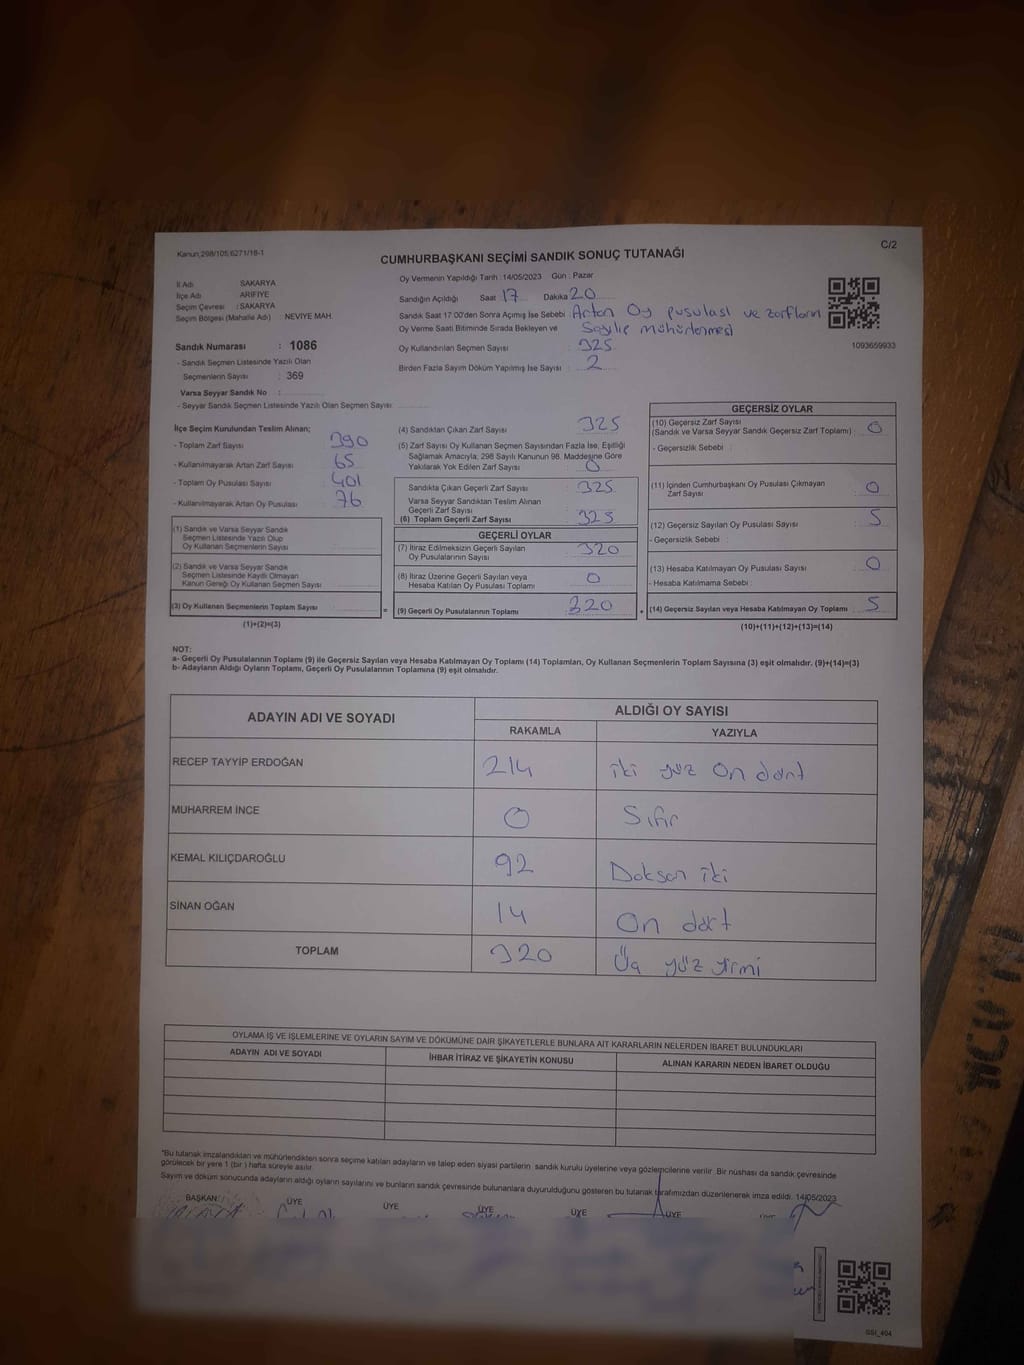 Kanun;298/105;6271/18-1
C/2
CUMHURBAŞKANI SEÇİMİ SANDIK SONUÇ TUTANAĞI
İl Adı SAKARYA
İlçe Adı ARİFİYE
Seçim Çevresi : SAKARYA
Seçim Bölgesi (Mahalle Adı) NEVİYE MAH.
Sandık Numarası : 1086
- Sandık Seçmen Listesinde Yazılı Olan
Seçmenlerin Sayısı : 369
Varsa Seyyar Sandık No :
- Seyyar Sandık Seçmen Listesinde Yazılı Olan Seçmen Sayısı
Oy Vermenin Yapıldığı Tarih : 14/05/2023 Gün : Pazar
Sandığın Açıldığı Saat 17 Dakika 20
Sandık Saat 17:00'den Sonra Açımış İse Sebebi : Artan Oy pusulası ve zarfların
Oy Verme Saati Bitiminde Sırada Bekleyen ve Sayılıp mühürlenmesi
Oy Kullandırılan Seçmen Sayısı : 325
Birden Fazla Sayım Döküm Yapılmış İse Sayısı : 2
1093659933
İlçe Seçim Kurulundan Teslim Alınan;
- Toplam Zarf Sayısı 390
- Kullanılmayarak Artan Zarf Sayısı 65
- Toplam Oy Pusulası Sayısı 401
- Kullanılmayarak Artan Oy Pusulası 76
(1) Sandık ve Varsa Seyyar Sandık
Seçmen Listesinde Yazılı Olup
Oy Kullanan Seçmenlerin Sayısı
(2) Sandık ve Varsa Seyyar Sandık
Seçmen Listesinde Kayıtlı Olmayan
Kanun Gereği Oy Kullanan Seçmen Sayısı
(3) Oy Kullanan Seçmenlerin Toplam Sayısı
(1)+(2)=(3)
(4) Sandıktan Çıkan Zarf Sayısı : 325
(5) Zarf Sayısı Oy Kullanan Seçmen Sayısından Fazla İse, Eşitliği
Sağlamak Amacıyla; 298 Sayılı Kanunun 98. Maddesine Göre
Yakılarak Yok Edilen Zarf Sayısı : 0
Sandıkta Çıkan Geçerli Zarf Sayısı : 325
Varsa Seyyar Sandıktan Teslim Alınan
Geçerli Zarf Sayısı
(6) Toplam Geçerli Zarf Sayısı : 325
GEÇERLİ OYLAR
(7) İtiraz Edilmeksizin Geçerli Sayılan
Oy Pusulalarının Sayısı : 320
(8) İtiraz Üzerine Geçerli Sayılan veya
Hesaba Katılan Oy Pusulası Toplamı : 0
= (9) Geçerli Oy Pusulalarının Toplamı : 320
GEÇERSİZ OYLAR
(10) Geçersiz Zarf Sayısı
(Sandık ve Varsa Seyyar Sandık Geçersiz Zarf Toplamı) : 0
- Geçersizlik Sebebi :
(11) İçinden Cumhurbaşkanı Oy Pusulası Çıkmayan
Zarf Sayısı : 0
(12) Geçersiz Sayılan Oy Pusulası Sayısı : 5
- Geçersizlik Sebebi :
(13) Hesaba Katılmayan Oy Pusulası Sayısı : 0
- Hesaba Katılmama Sebebi :
+ (14) Geçersiz Sayılan veya Hesaba Katılmayan Oy Toplamı : 5
(10)+(11)+(12)+(13)=(14)
NOT:
a- Geçerli Oy Pusulalarının Toplamı (9) ile Geçersiz Sayılan veya Hesaba Katılmayan Oy Toplamı (14) Toplamları, Oy Kullanan Seçmenlerin Toplam Sayısına (3) eşit olmalıdır. (9)+(14)=(3)
b- Adayların Aldığı Oyların Toplamı, Geçerli Oy Pusulalarının Toplamına (9) eşit olmalıdır.
ADAYIN ADI VE SOYADI ALDIĞI OY SAYISI
RAKAMLA YAZIYLA
RECEP TAYYİP ERDOĞAN 214 iki yüz On dört
MUHARREM İNCE 0 Sıfır
KEMAL KILIÇDAROĞLU 92 Doksan iki
SİNAN OĞAN 14 On dört
TOPLAM 320 Üç yüz yirmi
OYLAMA İŞ VE İŞLEMLERİNE VE OYLARIN SAYIM VE DÖKÜMÜNE DAİR ŞİKAYETLERLE BUNLARA AİT KARARLARIN NELERDEN İBARET BULUNDUKLARI
ADAYIN ADI VE SOYADI İHBAR İTİRAZ VE ŞİKAYETİN KONUSU ALINAN KARARIN NEDEN İBARET OLDUĞU
*Bu tutanak imzalandıktan ve mühürlendikten sonra seçime katılan adayların ve talep eden siyasi partilerin sandık kurulu üyelerine veya gözlemcilerine verilir. Bir nüshası da sandık çevresinde
görülecek bir yere 1 (bir) hafta süreyle asılır.
Sayım ve döküm sonucunda adayların aldığı oyların sayılarını ve bunların sandık çevresinde bulunanlara duyurulduğunu gösteren bu tutanak tarafımızdan düzenlenerek imza edildi. 14/05/2023
BAŞKAN ÜYE ÜYE ÜYE ÜYE ÜYE
GSI_404